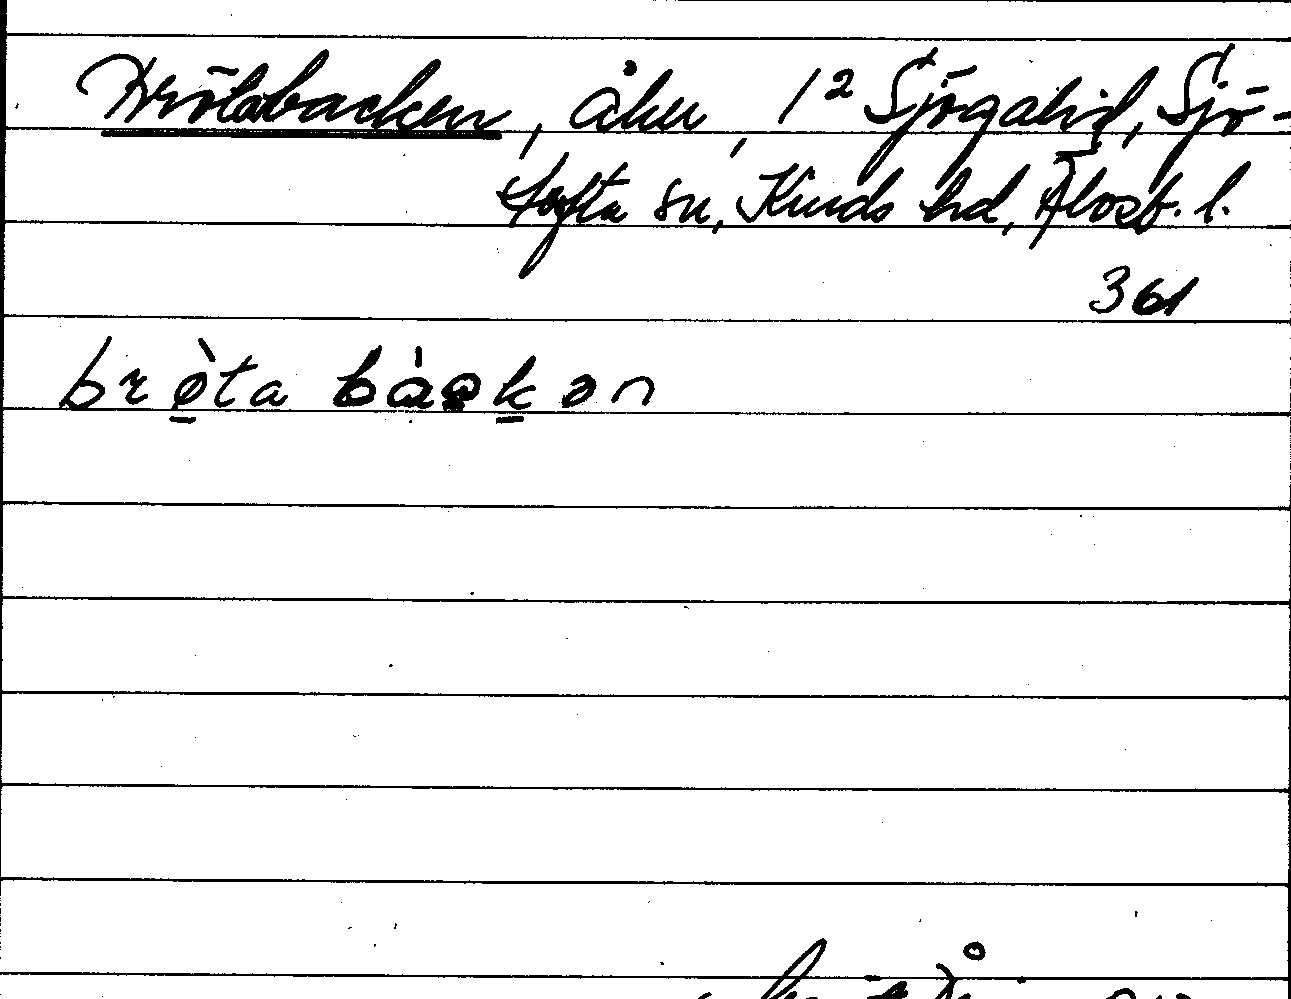 Brötabacken, åker, 1² Sjögahid, Sjö-
tofta sn, Kinds hd, Älvsb. l.
361
brøta backən